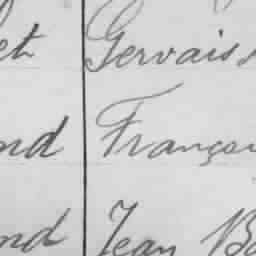 et Gervais
nd Françoi
nd Jean Ba